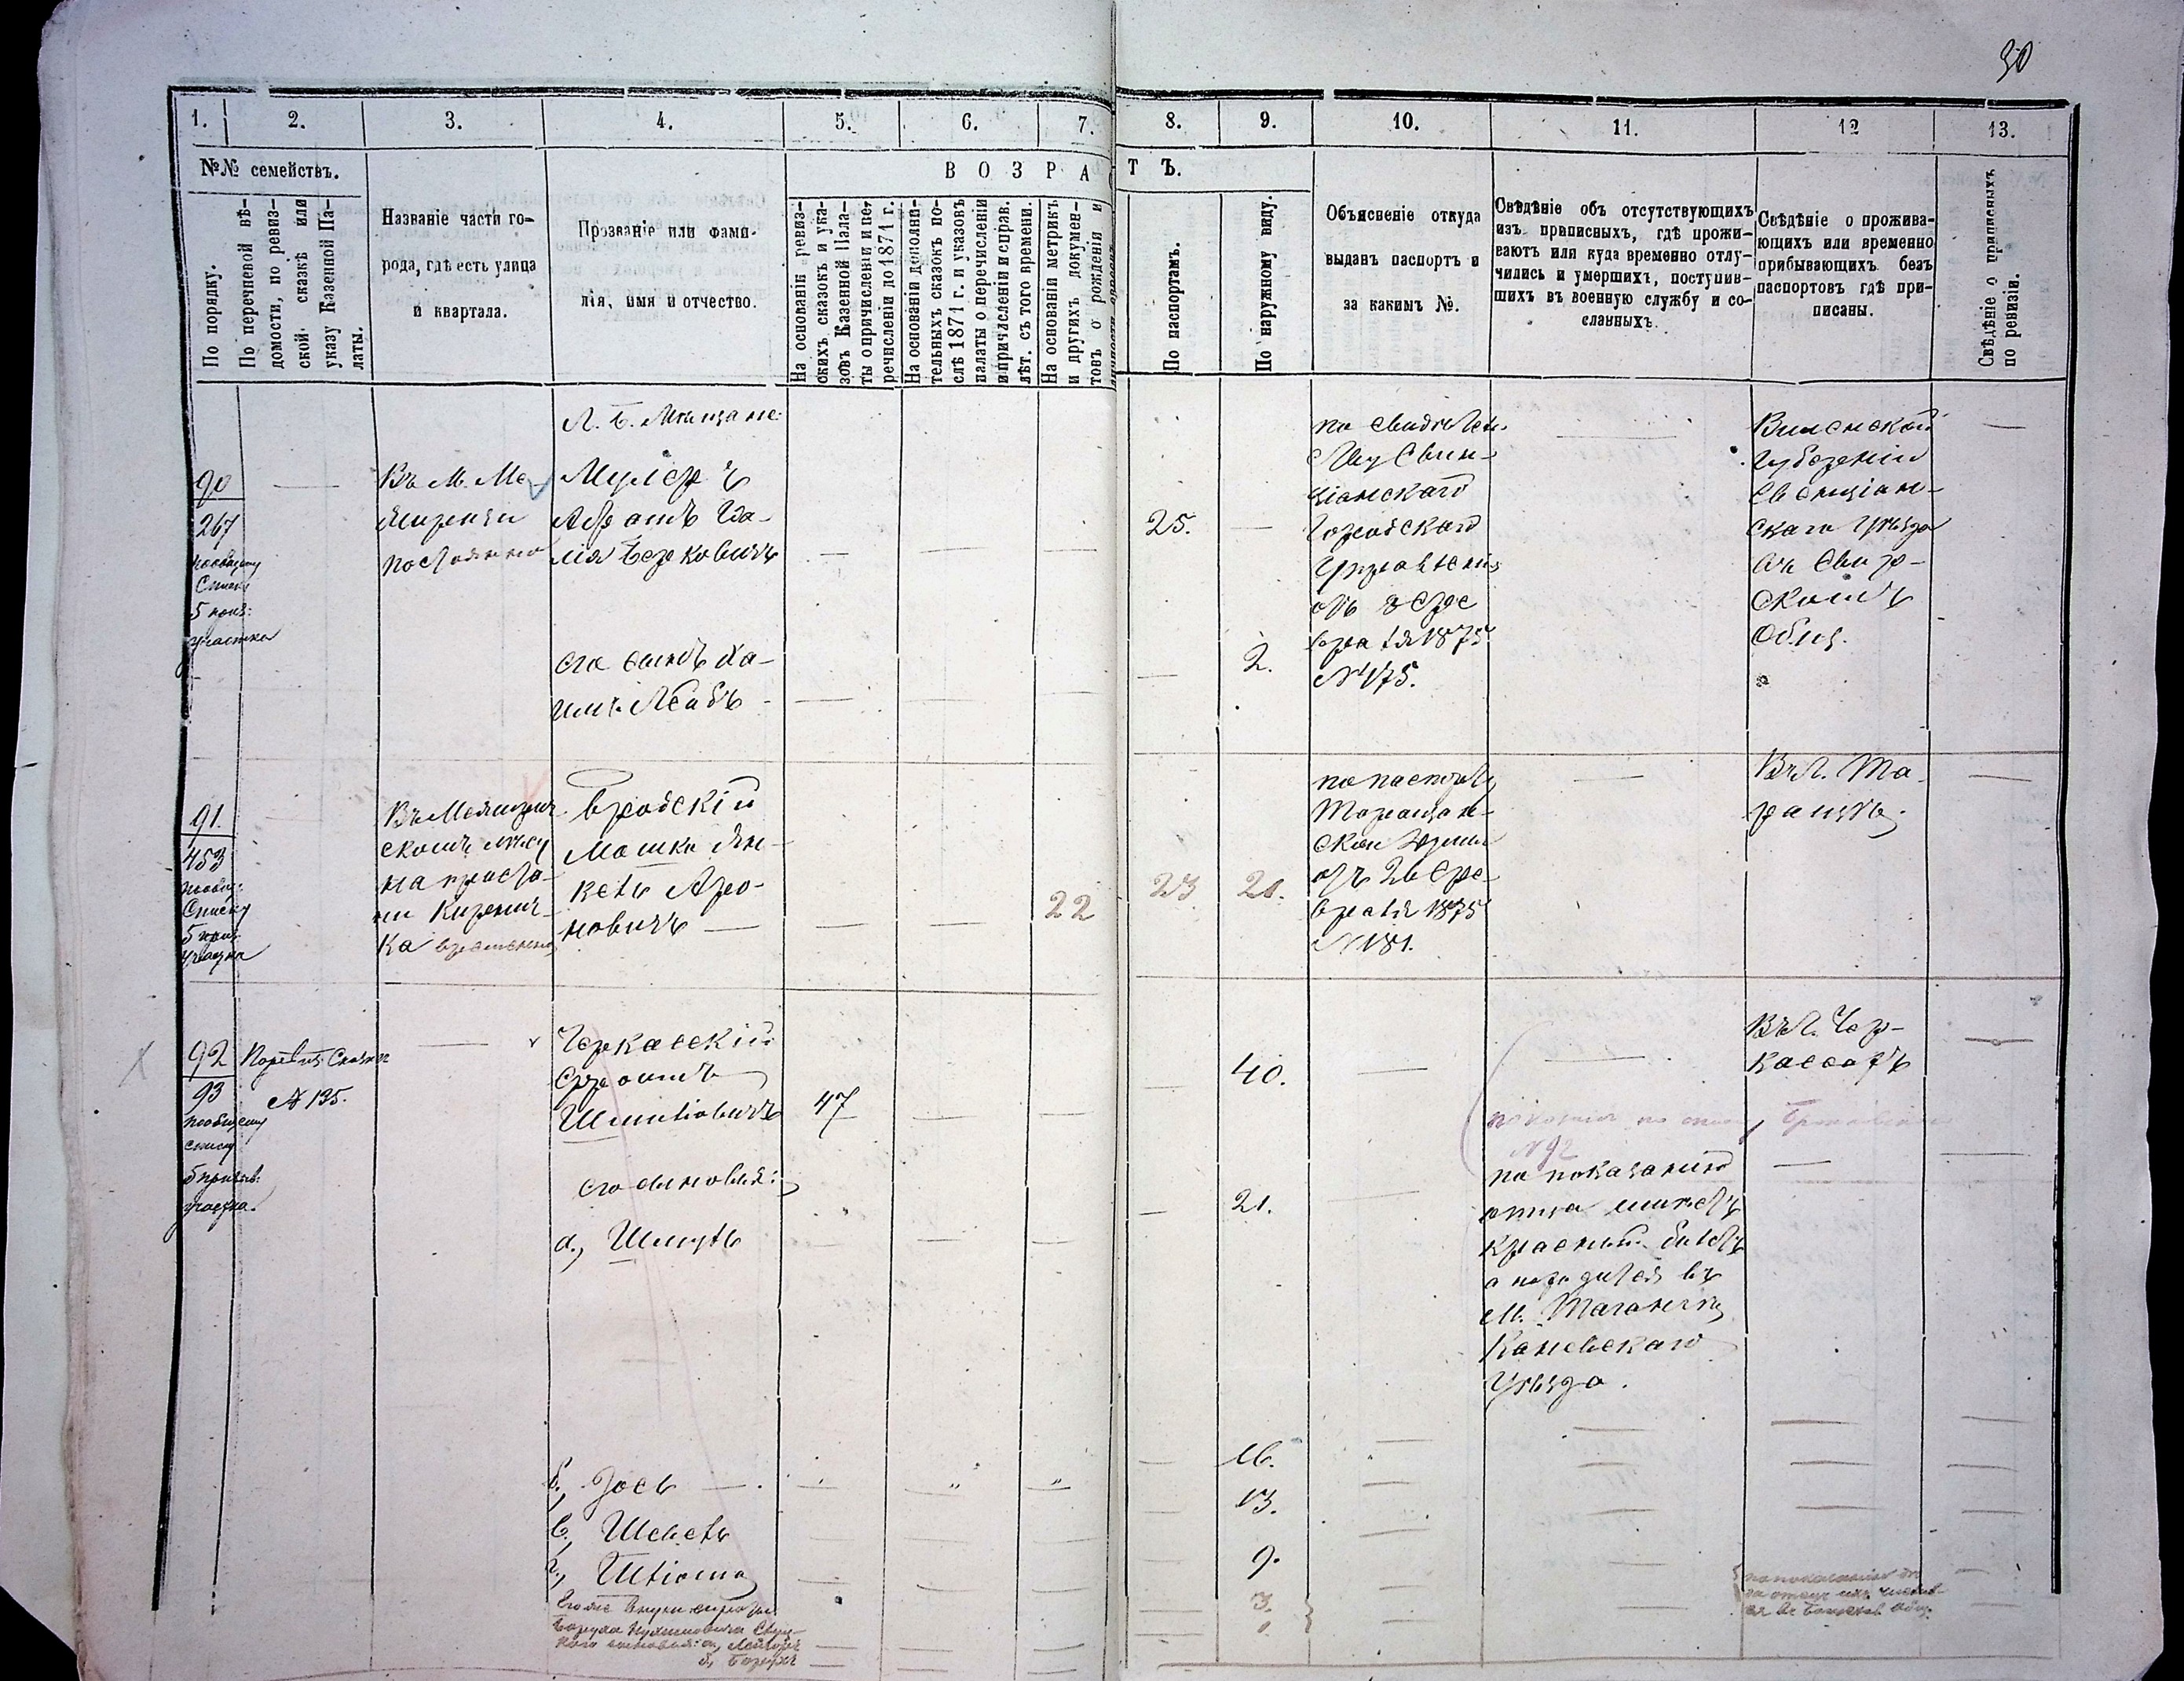 30
1. 2. 3. 4. 5. 6. 7. 8. 9. 10. 11. 12 13.
№№ семействъ.
По порядку.
По перечневой вѣ-
домости, по ревиз-
ской сказкѣ или
указу Казенной Па-
латы.
Названіе части го-
рода, гдѣ есть улица
и квартала.
Прозваніе или фами-
лія, имя и отчество.
ВОЗРАСТЪ.
На основаніи ревиз-
скихъ сказокъ и ука-
зовъ Казенной Пала-
ты о причисленіи и пе-
речисленіи до 1871 г.
На основаніи дополни-
тельныхъ сказокъ по-
слѣ 1871 г. и указовъ
палаты о перечисленіи
и причисленіи и справ.
лѣт. съ того времени.
На основаніи метрикъ
и другихъ докумен-
товъ о рожденіи и
По паспортамъ.
По наружному виду.
Объясненіе откуда
выданъ паспортъ и
за какимъ №.
Свѣдѣніе объ отсутствующихъ
изъ приписныхъ, гдѣ прожи-
ваютъ или куда временно отлу-
чились и умершихъ, поступив-
шихъ въ военную службу и со-
сланныхъ.
Свѣдѣніе о прожива-
ющихъ или временно
прибывающихъ безъ
паспортовъ гдѣ при-
писаны.
Свѣдѣніе о приписныхъ
по ревизіи.
90
267
по общему
списку
5 приз:
участка
Въ М. Ме-
жиричи
постоянно
Мещане
Мулеръ
Берковичъ
его сынъ Ха-
имъ Лейбъ
25.
2.
по свидѣтель-
ству Свен-
ціанскаго
Городскаго
Управленія
отъ 8 Фев
раля 1875
№ 175.
Виленской
Губерніи
Свенціан-
скаго Уѣзда
въ Свир-
скомъ
Общ.
91.
453
по общ:
списку
5 приз.
участка
Въ Межирич
скомъ лѣсу
на приста-
ни Киренич-
ка временно
Бродскій
Мошко Ян-
кель Аро-
новичъ
22
23
21.
по паспорту
Таращан-
ской Думы
отъ 26 Фев-
враля 1875
№ 181.
Въ Г. Та-
ращѣ.
92
93
по общему
списку
5 призыв:
участка.
По ревиз. Сказкѣ
№ 135.
Черкасскій
Фроимъ
Шмилiовичъ
47
40.
Въ Г. Чер-
кассахъ
№ 92
его сыновья:
а., Шмуль
21.
по показанію
отца имѣетъ
красный билетъ
а находится въ
М. Таганчѣ
Каневскаго
Уѣзда.
б., Іось
16.
в., Шевель
13.
г., Шлiома
9.
Его же внуки
сыновья: а, Лейзоръ
б, Борухъ
3.
1.
по показанію дѣ-
да отецъ ихъ числит-
ся въ